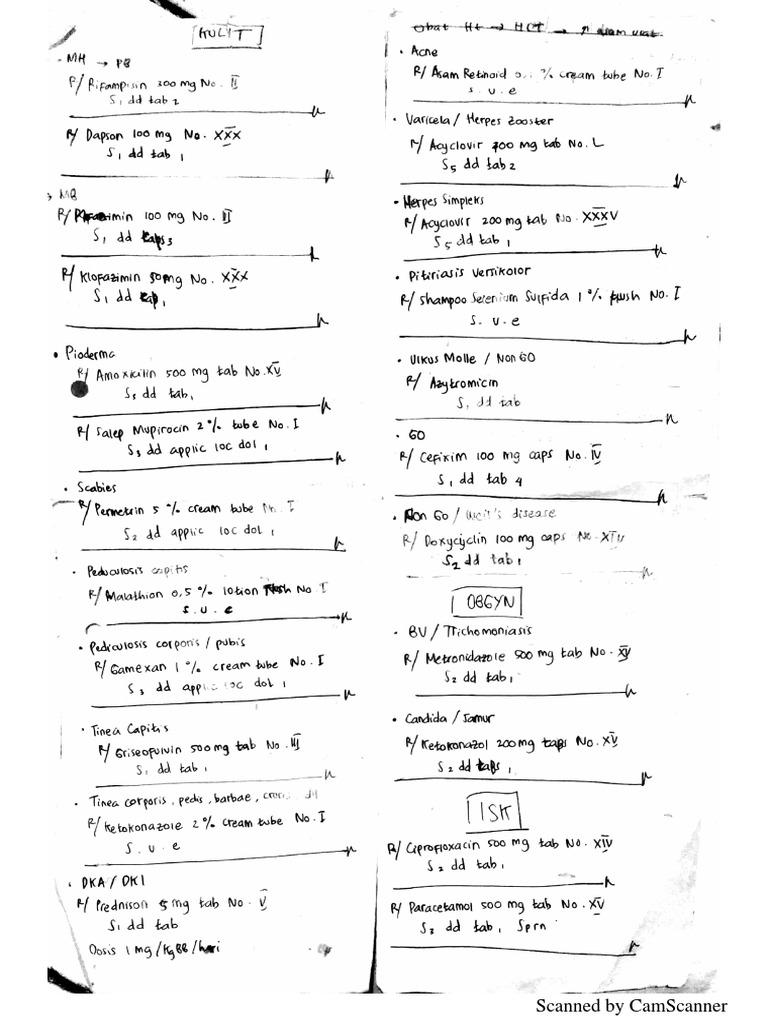 KULIT
- MH → PB
R/ Rifampisin 300 mg No. II
S1 dd tab 2
R/ Dapson 100 mg No. XXX
S1 dd tab 1
> MB
100 mg No. II
S1 dd caps 3
R/ Klofazimin 50mg No. XXX
S1 dd 1
• Pioderma
R/ Amoxicilin 500 mg tab No. XV
S3 dd tab 1
R/ Salep Mupirocin 2% tube No. I
S3 dd applic loc dol 1
• Scabies
R/ Permetrin 5 % cream tube No. I
S2 dd applic loc dol 1
• Pediculosis capitis
R/ Malathion 0,5 % lotion No. I
S. u. e
• Pediculosis corporis / pubis
R/ Gamexan 1 % cream tube No. I
S3 dd applic loc dol 1
• Tinea Capitis
R/ Griseofulvin 500mg tab No. III
S1 dd tab 1
• Tinea corporis, pedis, barbae,
R/ Ketokonazole 2% cream tube No. I
S. u. e
• DKA / DKI
R/ Prednison 5 mg tab No. V
S1 dd tab
Dosis 1 mg/kgBB/hari
Obat Ht → HCT →
• Acne
R/ Asam Retinoid % cream tube No. I
S. u. e
• Varicela / Herpes Zooster
R/ Acyclovir mg tab No. L
S5 dd tab 2
• Herpes Simpleks
R/ Acyclovir 200 mg tab No. XXXV
S5 dd tab 1
• Pitiriasis Versikolor
R/ Shampoo Selenium Sulfida 1% No. I
S. u. e
• Ulkus Molle / Non GO
R/ Azytromicin
S1 dd tab
• GO
R/ Cefixim 100 mg caps No. IV
S1 dd tab 4
• Non Go / disease
R/ Doxycyclin 100 mg caps No. XIV
S2 dd tab 1
OBGYN
• BV / Trichomoniasis
R/ Metronidazole 500 mg tab No. XV
S2 dd tab 1
• Candida / Jamur
R/ Ketokonazol 200 mg No. XV
S2 dd 1
ISK
R/ Ciprofloxacin 500 mg tab No. XIV
S2 dd tab 1
R/ Paracetamol 500 mg tab No. XV
S3 dd tab 1 Sprn
Scanned by CamScanner